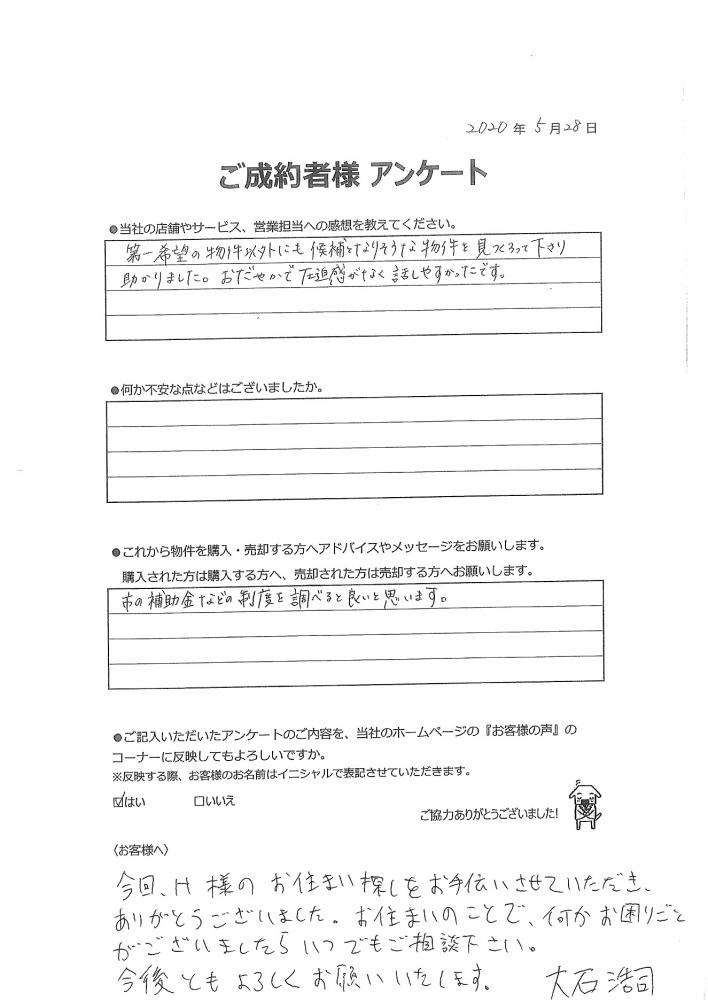 2020年5月28日
ご成約者様 アンケート
●当社の店舗やサービス、営業担当への感想を教えてください。
第一希望の物件以外にも候補となりそうな物件を見つくろって下さり
助かりました。おだやかで圧迫感がなく話しやすかったです。
●何か不安な点などはございましたか。
●これから物件を購入・売却する方へアドバイスやメッセージをお願いします。
購入された方は購入する方へ、売却された方は売却する方へお願いします。
市の補助金などの制度を調べると良いと思います。
●ご記入いただいたアンケートのご内容を、当社のホームページの『お客様の声』の
コーナーに反映してもよろしいですか。
※反映する際、お客様のお名前はイニシャルで表記させていただきます。
☑はい ☐いいえ
ご協力ありがとうございました!
〈お客様へ〉
今回、H様のお住まい探しをお手伝いさせていただき、
ありがとうございました。お住まいのことで、何かお困りごと
がございましたらいつでもご相談下さい。
今後ともよろしくお願いいたします。 大石浩司